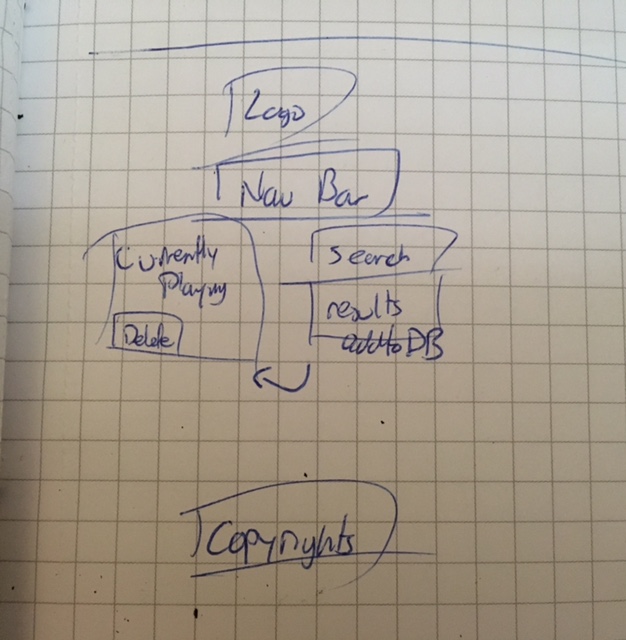 Logo
Nav Bar
Currently
Playing
Delete
Search
results
add to DB
Copyrights